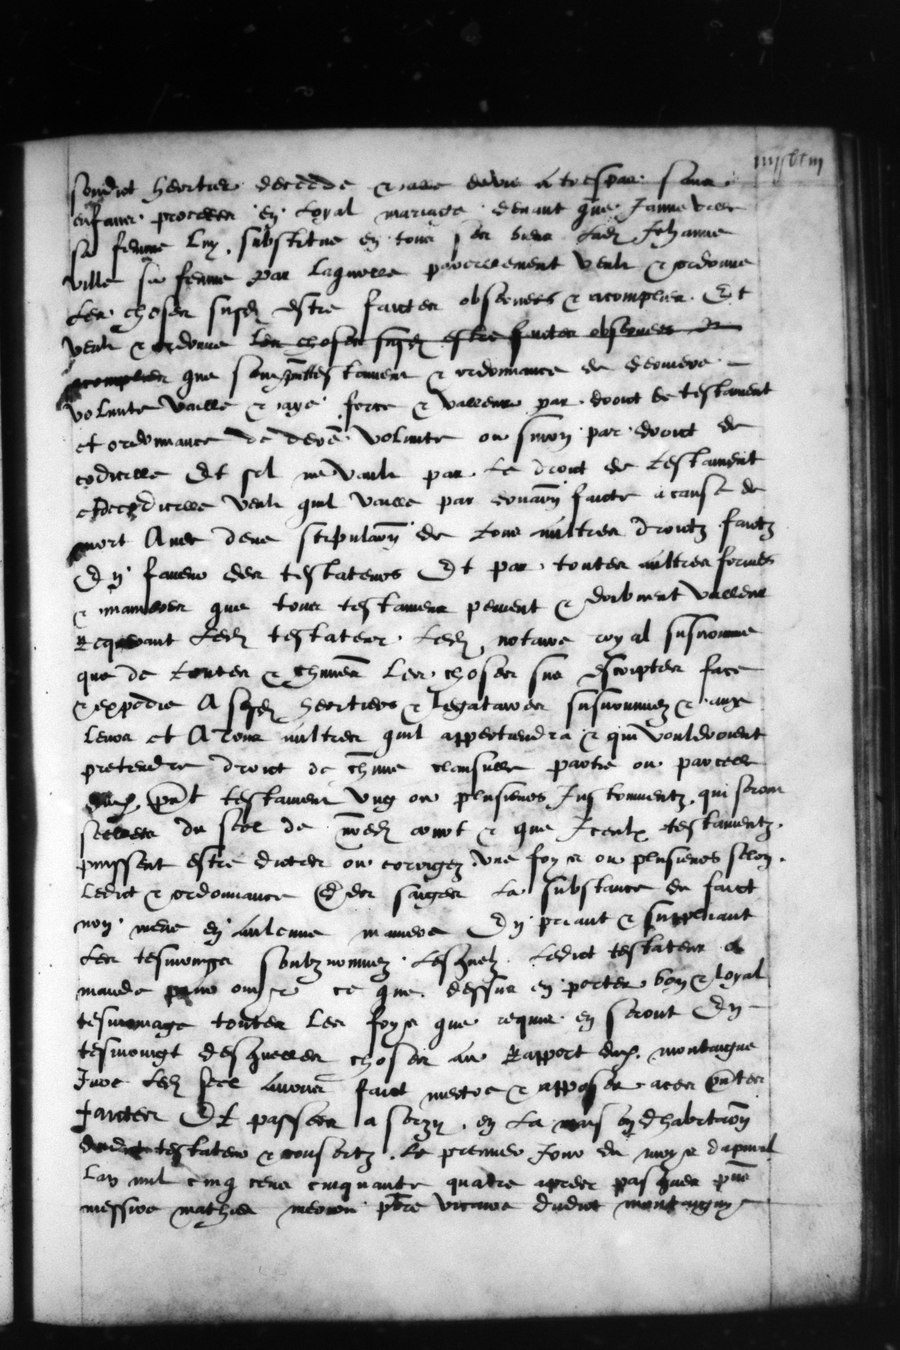 sondict heretier decede & alle de vie a trespas sans
enfans procrees en loyal mariage devant que Janne ville
sa femme luy substitue en tous ses biens lad Jehanne
ville sa femme par laquelle pareillement veult & ordonne
les choses susd estre faictes observees & acomplies Et
veult & ordonne les choses susd estre faictes observees &
acomplies que son pnt testament & ordonnance de derniere
volunte vaille & aye force & valleur par droict de testament
et ordonnance de derre volunte ou sinon par droict de
codicille Et sil ne vault par le droict de testament
et de codicille veult quil vaille par donaon faicte a cause de
mort Avec deue stipulaon de tous aultres droictz faictz
En faveur des testateurs Et par toutes aultres formes
& manieres que tous testamens peuvent & doibvent valleur
Requerant led testateur led notaire royal susnomme
que de toutes & chnes les choses sus escriptes face
& expedie A sesd heretiers & legataires susnommez & aux
leurs et A tous aultres quil appertiendra & qui vouldroient
pretendre droict de chne clausulle partie ou parcelle
dud pnt testament ung ou plusieurs Instrumentz qui seront
seelles du seel de nred court & que Iceulx testamentz
puissent estre dictes ou corrigez une foys ou plusieurs selon
ledict & ordonnance des saiges la substance du faict
non muee en aulcune maniere En priant & suppliant
les tesmoings soubznommez lesquelz ledict testateur a
mande pour ouyr ce que dessus en porter bon & loyal
tesmoniage toutes les foys que requis en seront En
tesmoingt desquelles choses au Rapport dud montaigne
Jure led seel avons faict mectre & apposer a ces pntes
faictes Et passees a serzy en la maison dhabitaon
dudict testateur & consortz le premier Jour du moys dapvril
lan mil cinq cens cinquante quatre apres pasques pns
messire mathieu pbre vicaire dudict